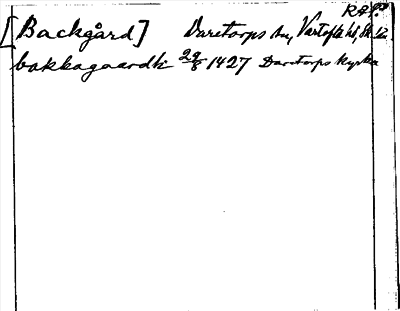 RAP
[Backgård] Daretorps sn, Vartofta hd,
bakkagaardh 29/8 1427 Daretorps kyrka